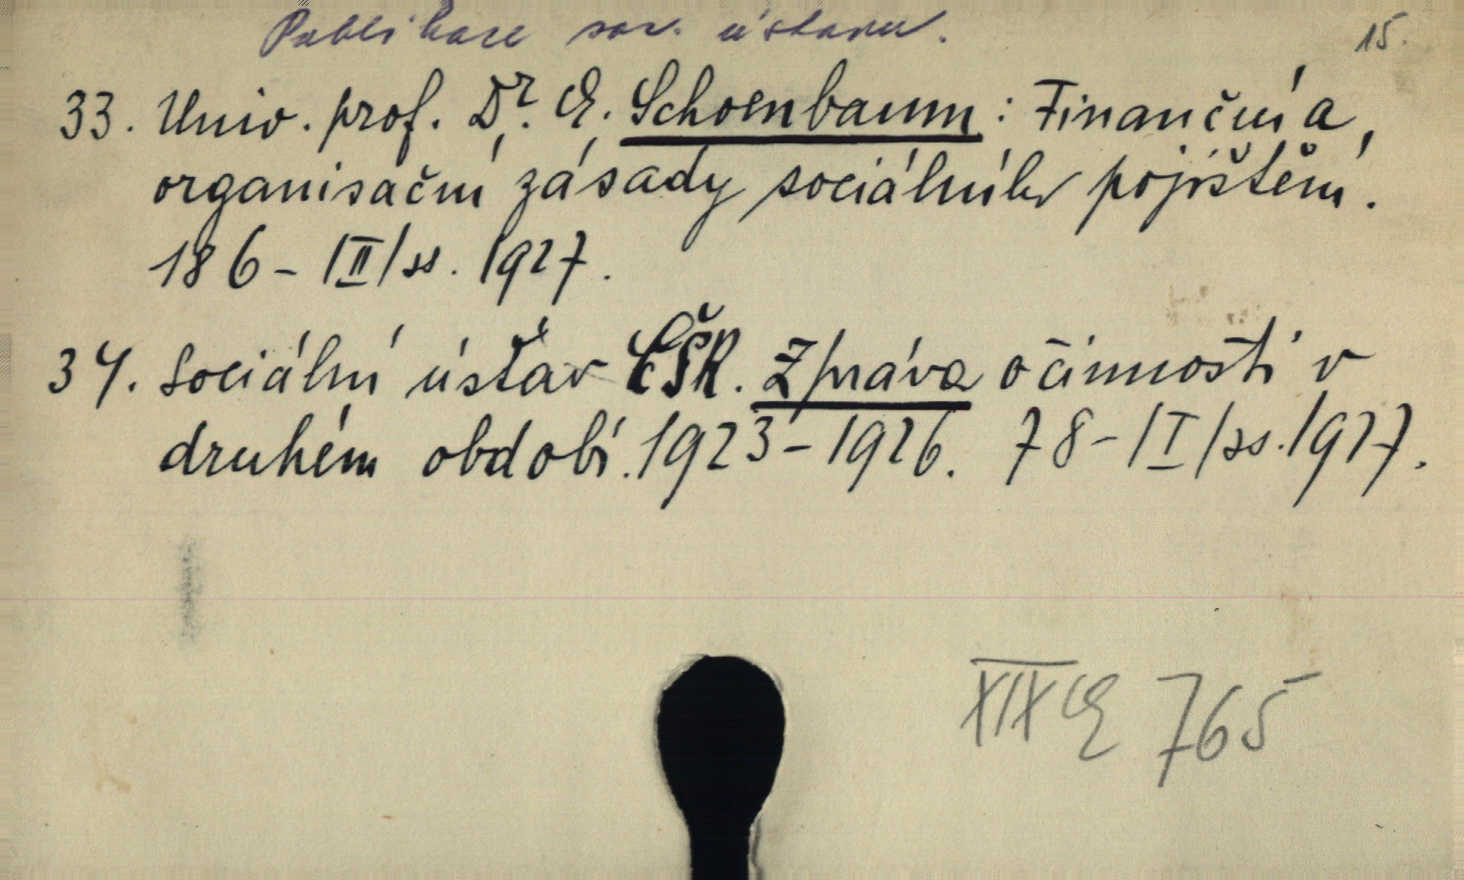 Publikace soc. ústavu.
15.
33. Univ. prof. Dr. E. Schoenbaum: Finanční a
organisační zásady sociálního pojištění.
186 - |II| ss. 1927.
34. Sociální ústav ČSR. Zpráva o činnosti v
druhém období. 1923-1926. 78 - |I| ss. 1927.
XIX E 765